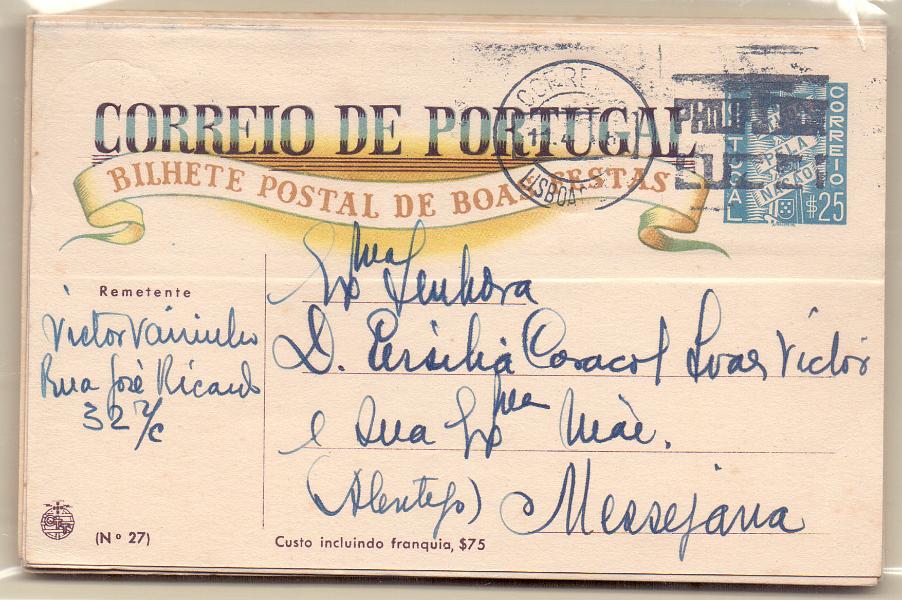 CORREIO DE PORTUGAL
BILHETE POSTAL DE BOAS FESTAS
CORRE
LISBOA
CORREIO
PORTUGAL
TUDO PELA NAÇÃO
$25
Remetente
Victor Vairinho
Rua José Ricardo
32 r/c
Exma Senhora
D. Cersilia Caracol Soares Victor
e sua Exma Mãe.
(Alentejo) Messejana
(Nº 27)
Custo incluindo franquia, $75